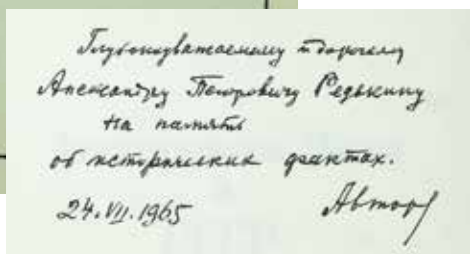 Глубокоуважаемому и дорогому
Александру Петровичу Редькину
на память
об исторических фактах.
24.VII.1965 Автор